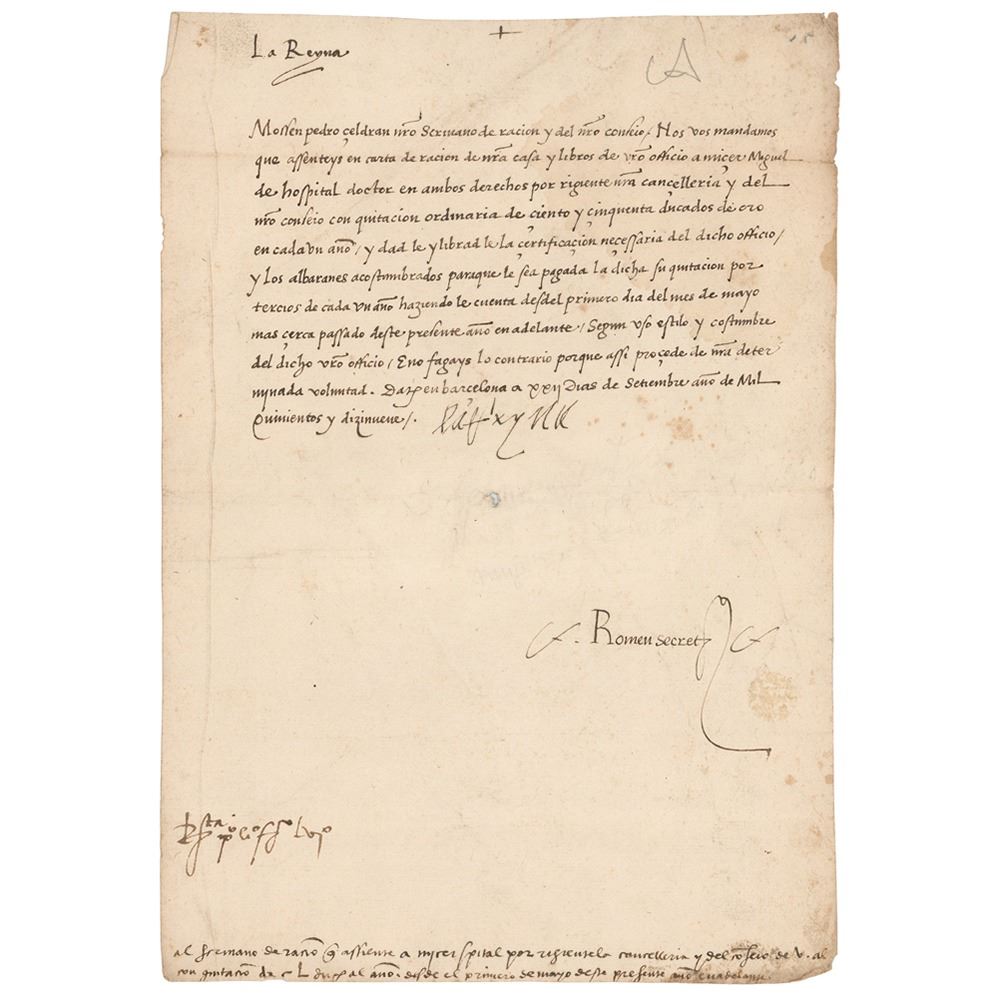 La Reyna
Mossen pedro çeldran nr̃o Scrivano de racion y del nr̃o conseio / Nos vos mandamos
que assenteys en carta de racion de nr̃a casa y libros de vr̃o officio a micer Miguel
de hospital doctor en ambos derechos por rigiente nr̃a cancelleria y del
nr̃o conseio con quitacion ordinaria de ciento y cinquenta ducados de oro
en cada vn año / y dad le y librad le la certificaçion necessaria del dicho officio /
y los albaranes acostumbrados paraque le sea pagada la dicha su quitacion por
tercios de cada vn año haziendo le cuenta desdel primero dia del mes de mayo
mas çerca passado deste presente año en adelante / Segun vso estilo y costumbre
del dicho vr̃o officio / E no fagays lo contrario porque assi proçede de nr̃a deter
minada voluntad . Dat en barcelona a xxij Dias de Setiembre año de Mil
Quinientos y dizinueve /.
Romeu secret
al scrivano de racio q̃ assiente a micer spital por regente la cancelleria y del cõseio de v. al
con quitacio de c L duc al año . desde el primero de mayo deste presente año en adelante .